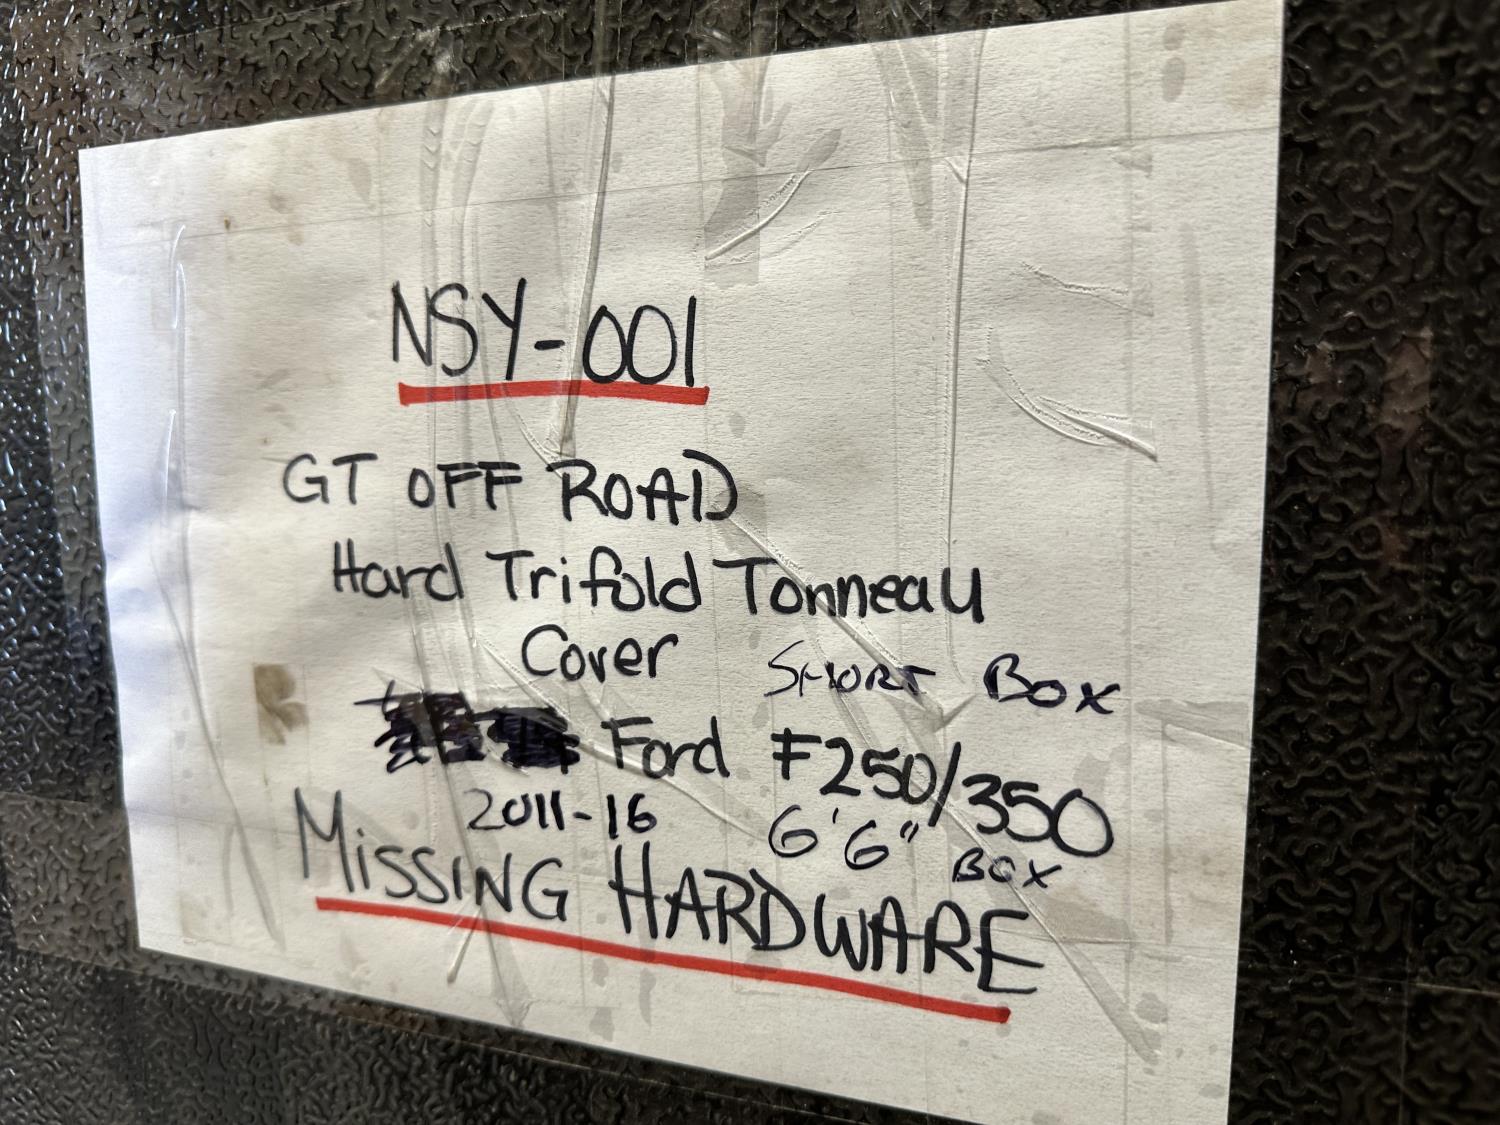 NSY-001
GT OFF ROAD
Hard Trifold Tonneau
Cover SHORT BOX
Ford F250/350
2011-16 6'6" BOX
MISSING HARDWARE